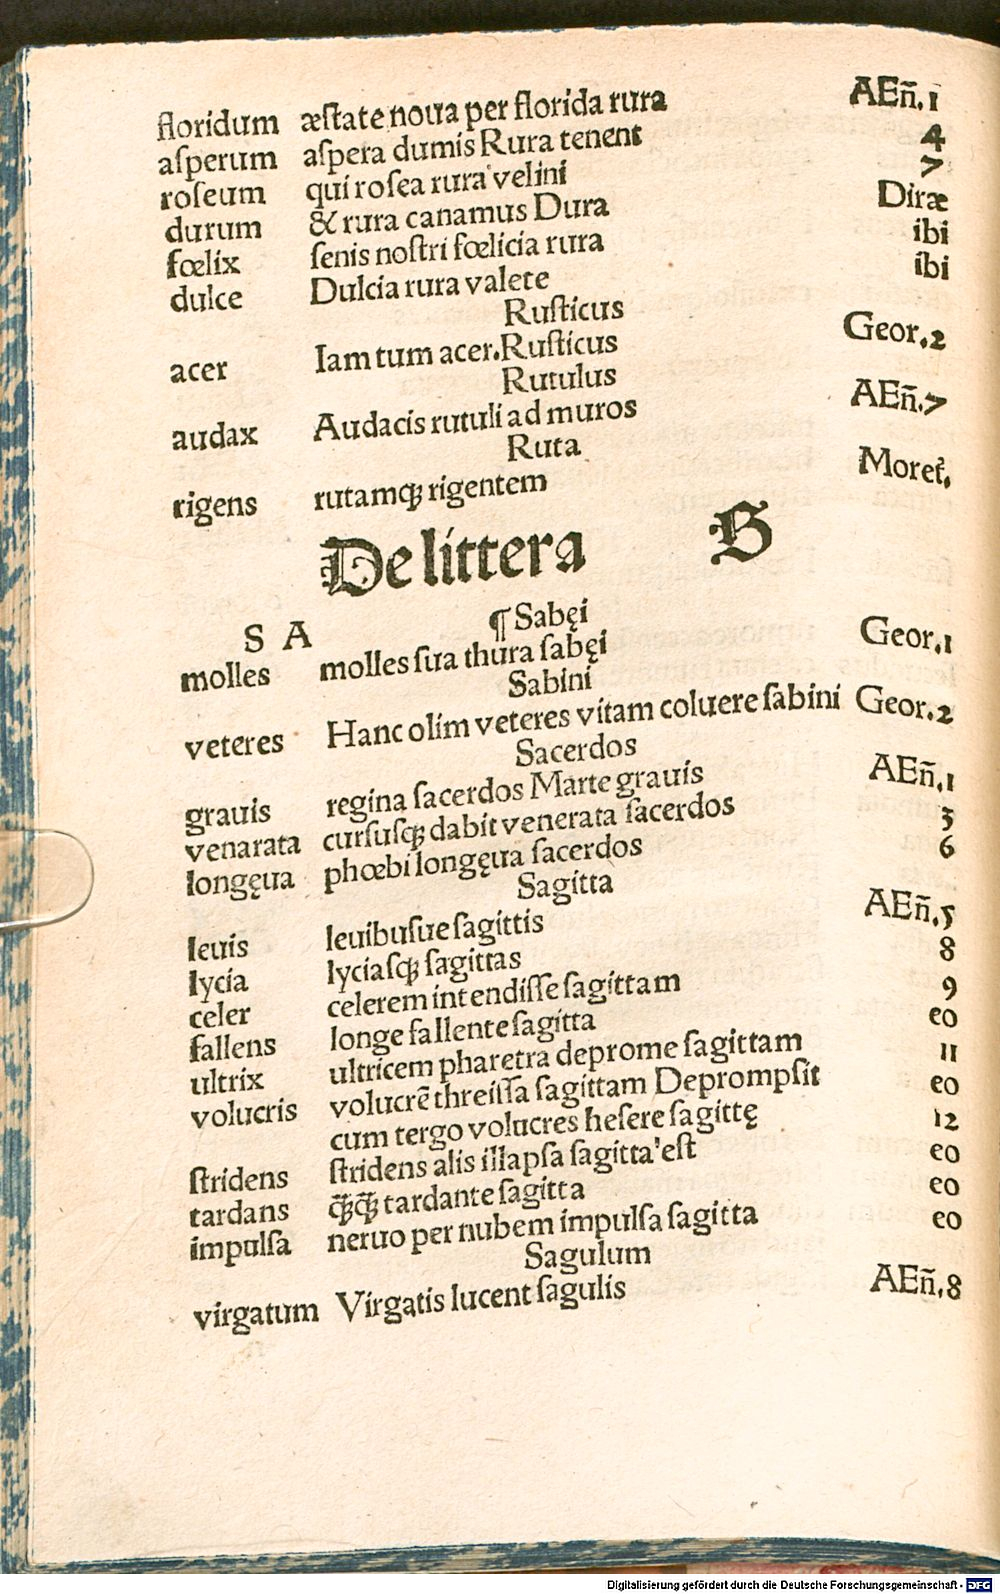 floridum æſtate noua per florida rura AEn̄.1
aſperum aſpera dumis Rura tenent 4
roſeum qui roſea rura velini 7
durum & rura canamus Dura Diræ
fœlix ſenis noſtri fœlicia rura ibi
dulce Dulcia rura valete ibi
Ruſticus
acer Iam tum acer.Ruſticus Geor.2
Rutulus
audax Audacis rutuli ad muros AEn̄.7
Ruta
rigens rutamqꝫ rigentem Moret̄.
De littera S
S A ¶Sabęi
molles molles ſua thura ſabęi Geor.1
Sabini
veteres Hanc olim veteres vitam coluere ſabini Geor.2
Sacerdos
grauis regina ſacerdos Marte grauis AEn̄.1
venarata curſuſqꝫ dabit venerata ſacerdos 3
longęua phœbi longęua ſacerdos 6
Sagitta
leuis leuibuſue ſagittis AEn̄.5
lycia lyciaſqꝫ ſagittas 8
celer celerem intendiſſe ſagittam 9
fallens longe fallente ſagitta eo
ultrix ultricem pharetra deprome ſagittam 11
volucris volucrē threiſſa ſagittam Deprompſit eo
cum tergo volucres heſere ſagittę 12
ſtridens ſtridens alis illapſa ſagitta'eſt eo
tardans qꝫqꝫ tardante ſagitta eo
impulſa neruo per nubem impulſa ſagitta eo
Sagulum
virgatum Virgatis lucent ſagulis AEn̄.8
Digitalisierung gefördert durch die Deutsche Forschungsgemeinschaft - DFG